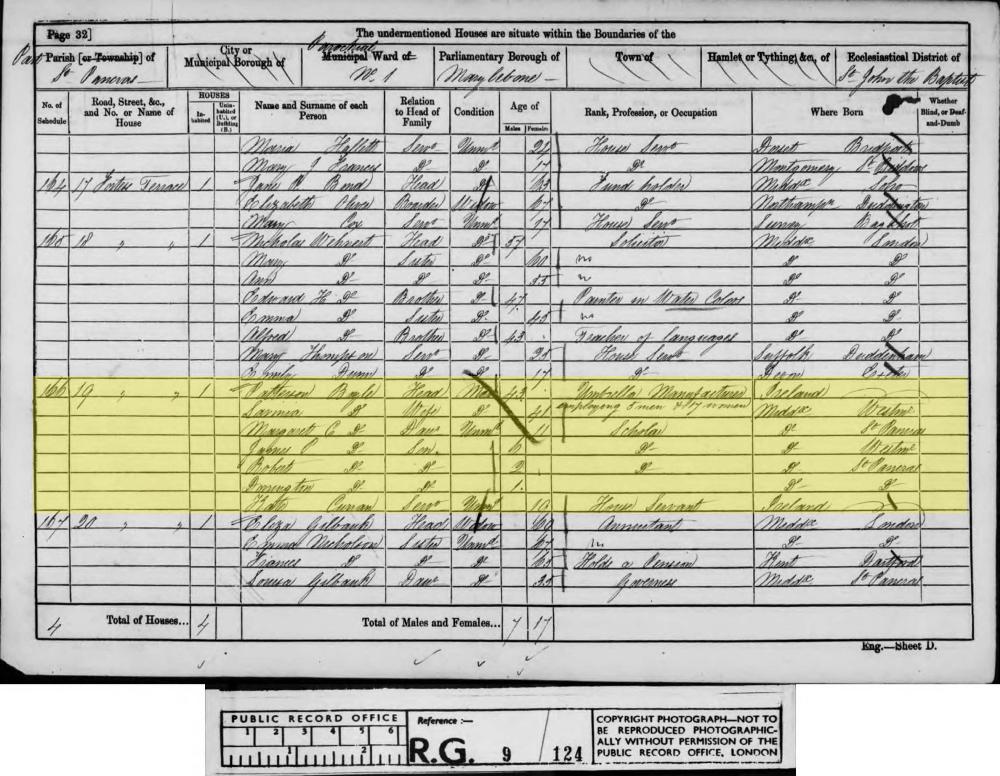 Page 32]
The undermentioned Houses are situate within the Boundaries of the
Part Parish [or Township] of
City or Municipal Borough of
Parochial
Municipal Ward of
Parliamentary Borough of
Town of
Hamlet or Tything, &c., of
Ecclesiastical District of
St Pancras
No. 1
Marylebone
St John the Baptist
No. of Schedule
Road, Street, &c., and No. or Name of House
HOUSES
Inhabited
Uninhabited (U.), or Building (B.)
Name and Surname of each Person
Relation to Head of Family
Condition
Age of
Males Females
Rank, Profession, or Occupation
Where Born
Whether Blind, or Deaf-and-Dumb
Maria Hallett Servt Unmd House Servt Dorset Bridport
Mary J Frances Do Do 17 Do Montgomery
164 17 Fortess Terrace 1 Jane Bond Head Do 63 Fund holder Middx Soho
Elizabeth Boarder Widow 67 Do Northampn Duddington
Mary Cox Servt Unmd 17 House Servt Surrey Bagshot
165 18 " " 1 Nicholas Wehnert Head Do 57 Solicitor Middx London
Mary Do Sister Do 60 Do Do
Ann Do Do Do 55 Do Do
Edward H Do Brother Do 47 Painter in Water Colors Do Do
Emma Do Sister Do 45 Do Do
Alfred Do Brother Do 43 Teacher of languages Do Do
Mary Thompson Servt Do 25 House Servt Suffolk
Dunn Do Do 17 Do Devon Exeter
166 19 " " 1 Patterson Boyle Head Mar 43 Umbrella Manufacturer Ireland
employing 8 men & 47 women
Do Wife Do 41 Middx Westmr
Margaret C Do Daur Unmd 11 Scholar Do St Pancras
James C Do Son 6 Do Do Westmr
Robert Do Do 2 Do Do St Pancras
Do Do 1 Do Do
Kate Curran Servt Unmd 19 House Servant Ireland
167 20 " " 1 Eliza Gilbank Head Widow 69 Annuitant Middx London
Emma Nicholson Sister Unmd 67 Do Do
Frances Do Do Do 65 Holds a Pension Kent Dartford
Louisa Gilbank Daur Do 35 Governess Middx St Pancras
4 Total of Houses... 4 Total of Males and Females... 7 17
Eng.—Sheet D.
PUBLIC RECORD OFFICE
1 2 3 4 5 6
1 2
Reference :—
R.G. 9 / 124
COPYRIGHT PHOTOGRAPH—NOT TO
BE REPRODUCED PHOTOGRAPHIC-
ALLY WITHOUT PERMISSION OF THE
PUBLIC RECORD OFFICE, LONDON